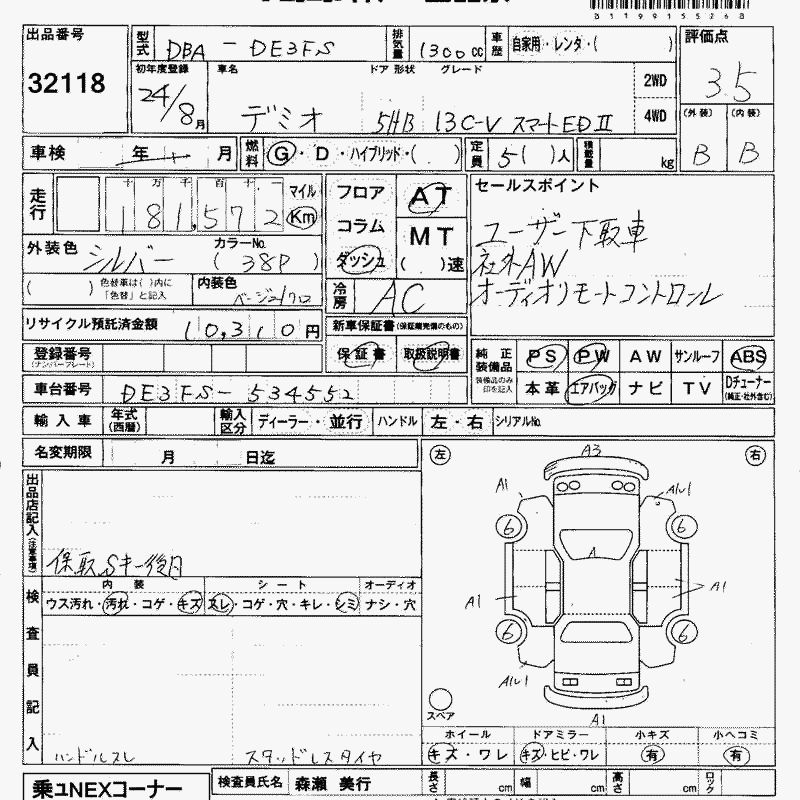 B1199155268
出品番号
32118
型式
DBA - DE3FS
排気量
1300 cc
車歴
自家用・レンタ・( )
評価点
3.5
初年度登録
24/8月
車名
デミオ
ドア 形状
5HB
グレード
13C-V スマートEDⅡ
2WD
4WD
(外装)
B
(内装)
B
車検
年 月
燃料
G・D・ハイブリッド・( )
定員
5( )人
積載量
kg
走行
十 万 千 百 十 一
181,572
マイル
Km
フロア
コラム
ダッシュ
AT
MT
( )速
セールスポイント
ユーザー下取車
社外AW
オーディオリモートコントロール
外装色
シルバー
カラーNo.
( 38P )
( )
色替車は( )内に
「色替」と記入
内装色
ベージュ/クロ
冷房
AC
リサイクル預託済金額
10,310円
新車保証書(保証継続可能のもの)
保証書
取扱説明書
登録番号
(ナンバープレート)
純正装備品
装備品のみ印を記入
PS
PW
AW
サンルーフ
ABS
本革
エアバッグ
ナビ
TV
Dチューナー
(純正・社外含む)
車台番号
DE3FS-534552
輸入車
年式
(西暦)
輸入区分
ディーラー・並行
ハンドル
左・右
シリアルNo.
名変期限
月 日迄
左
右
出品店記入(注意事項)
保取Sキー後日
検査員記入
内装
シート
オーディオ
ウス汚れ・汚れ・コゲ・キズ
スレ・コゲ・穴・キレ・シミ
ナシ・穴
ハンドルスレ
スタッドレスタイヤ
A3
A1
A1
6
6
A
A1
A1
6
6
A1
スペア
ホイール
キズ・ワレ
ドアミラー
キズ・ヒビ・ワレ
小キズ
有
小ヘコミ
有
乗ュNEXコーナー
検査員氏名
森瀬 美行
長さ
cm
幅
cm
高さ
cm
ロック